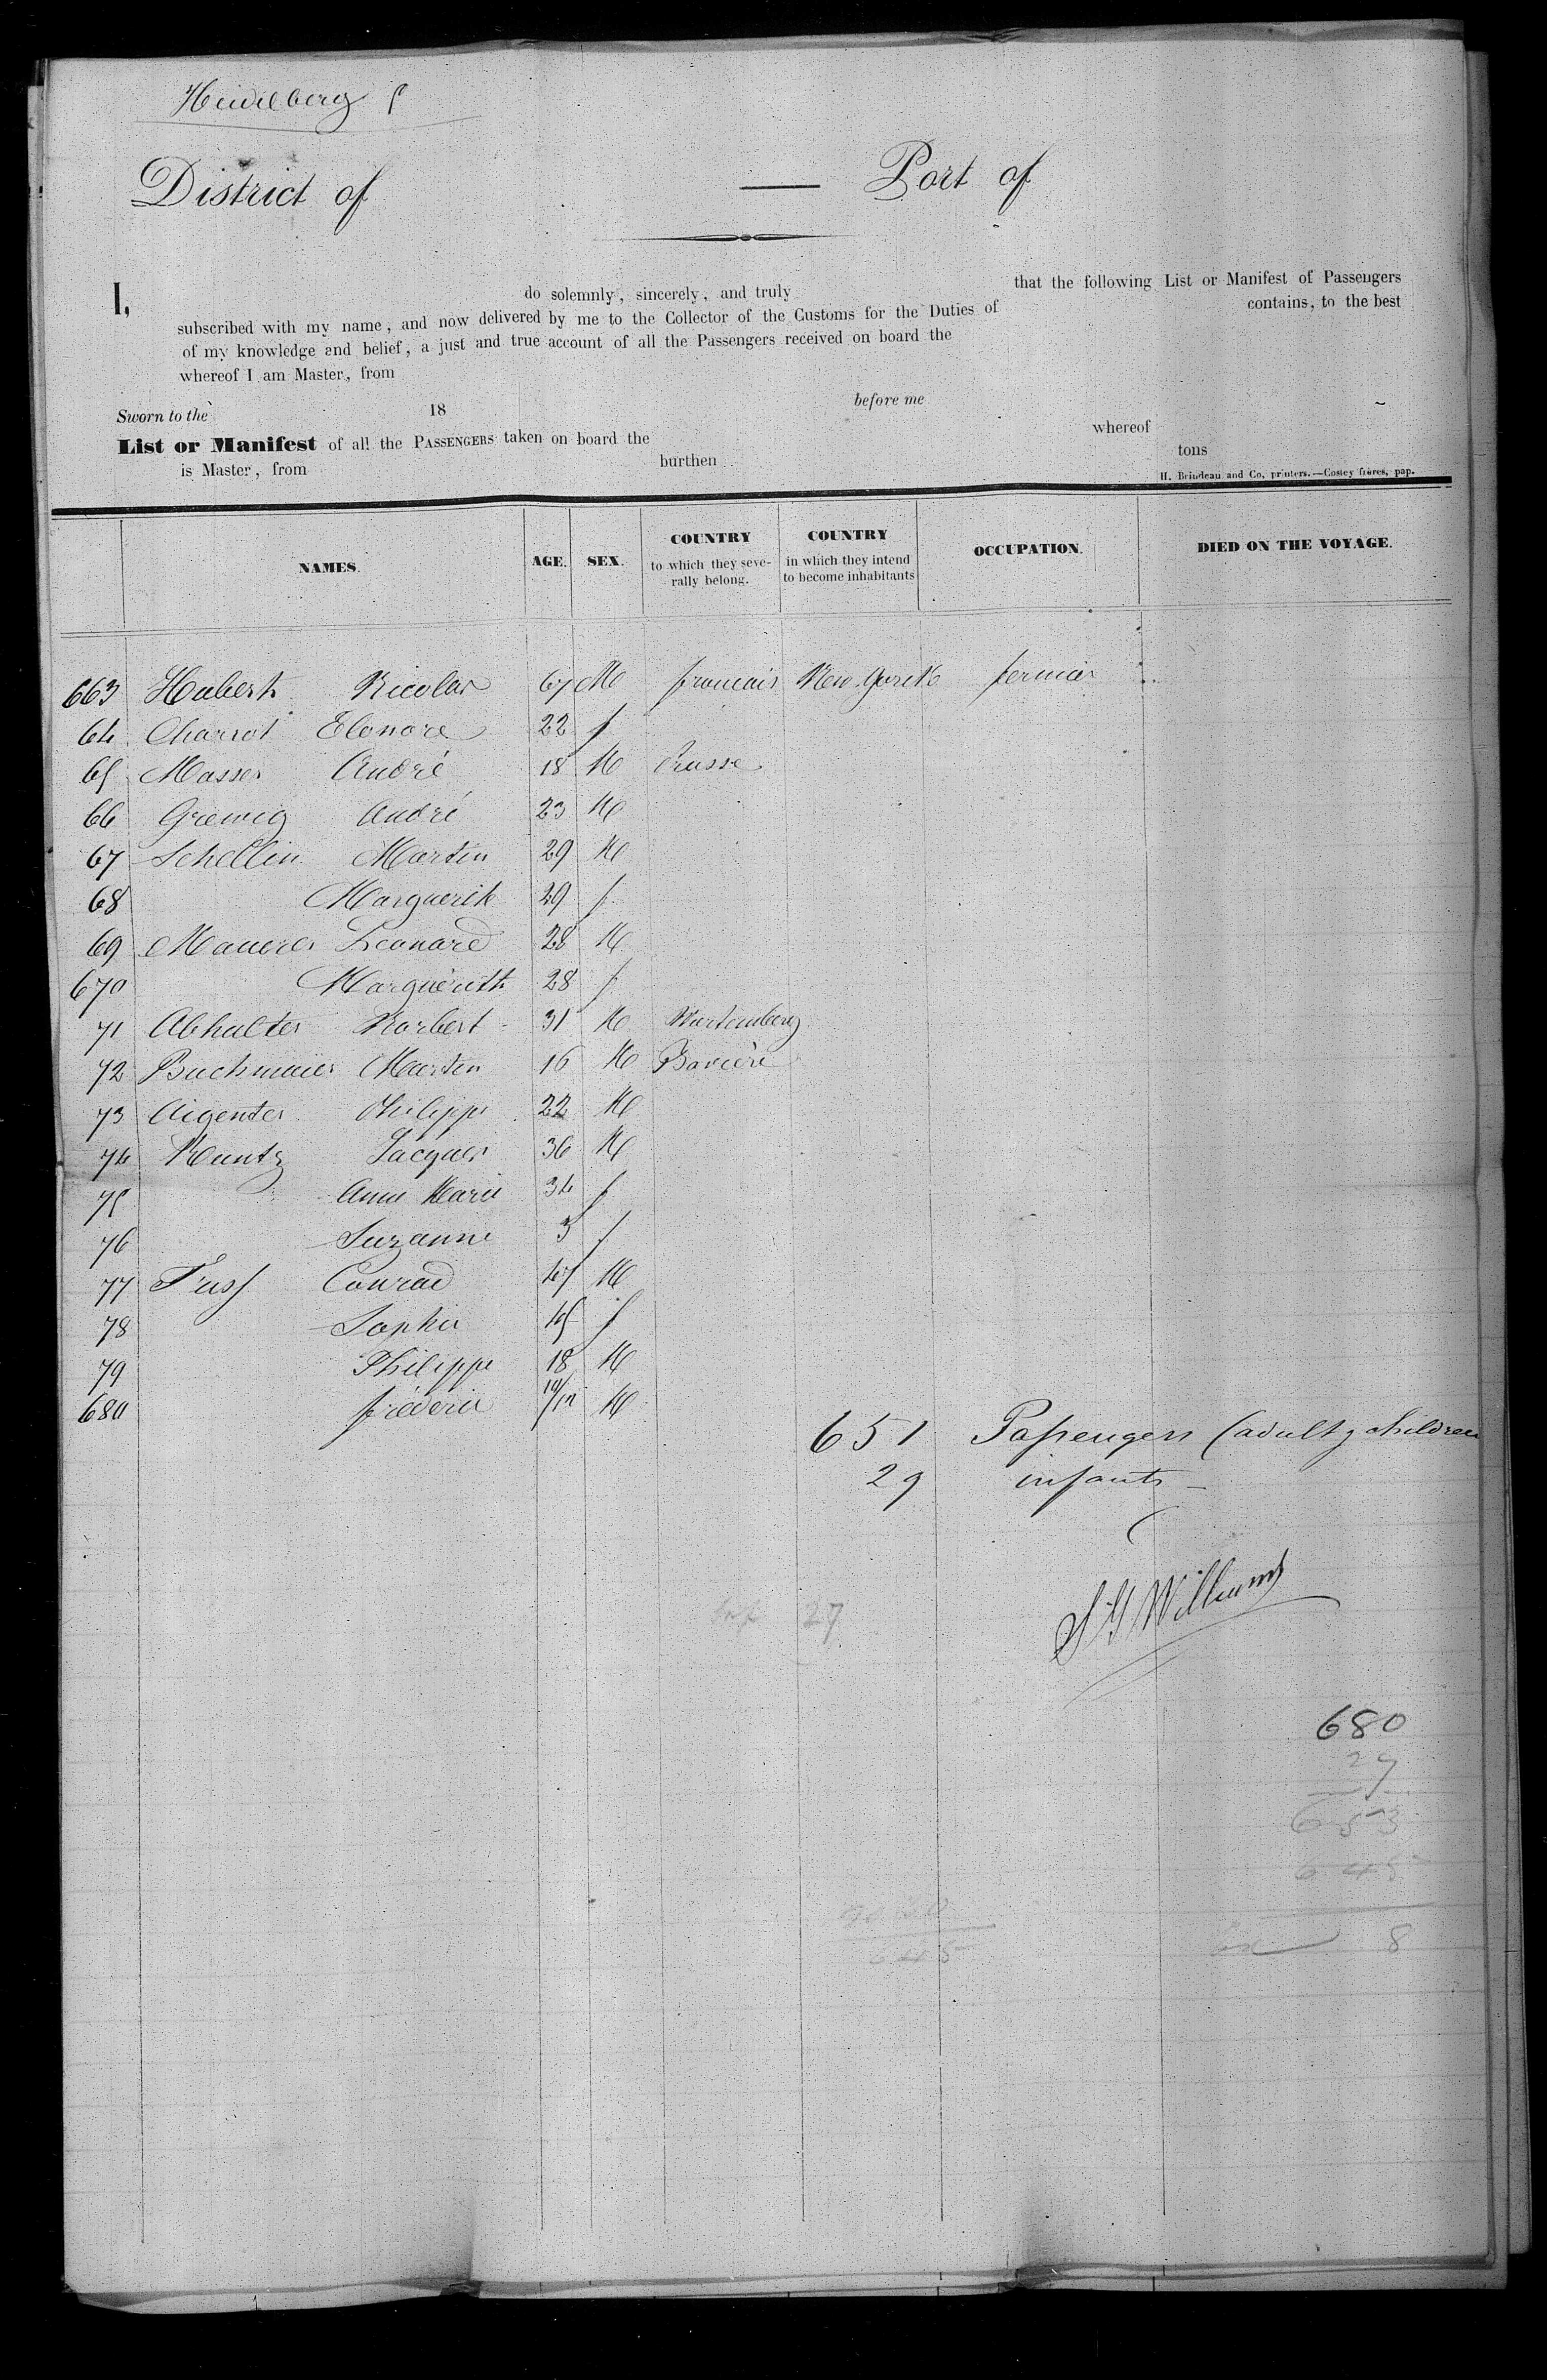 Heidelberg
District of — Port of
I, do solemnly, sincerely, and truly that the following List or Manifest of Passengers
subscribed with my name, and now delivered by me to the Collector of the Customs for the Duties of contains, to the best
of my knowledge and belief, a just and true account of all the Passengers received on board the
whereof I am Master, from
Sworn to the 18 before me
List or Manifest of all the PASSENGERS taken on board the whereof
is Master, from burthen tons
H. Brindeau and Co, printers.—Costey frères, pap.
NAMES. AGE. SEX. COUNTRY to which they seve-rally belong. COUNTRY in which they intend to become inhabitants OCCUPATION. DIED ON THE VOYAGE.
663 Hubert Nicolas 67 M francais New York fermier
64 Charrot Elonore 22 f
65 Masser André 18 M Prusse
66 Grewig André 23 M
67 Schellin Martin 29 M
68 Marguerite 29 f
69 Maurer Leonard 28 M
670 Margueritte 28 f
71 Abhalter Norbert 31 M Wurtemberg
72 Buchmaier Martin 16 M Baviere
73 Aigenter Philippe 22 M
74 Kuntz Jacques 36 M
75 Anne Marie 34 f
76 Suzanne 3 f
77 Fuss Conrad 47 M
78 Sophie 45 f
79 Philippe 18 M
680 frederic 10/12 M
651 Passengers (adult & children
29 infants
S G Williams
27
680
27
653
645
8
645